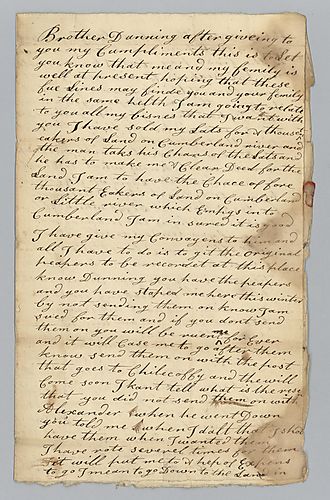 Brother Dunning after giveing to
you my Cumpliments this is to Let
you know that me and my femily is
well at present hoping that these
fue Lines may finde you and your femily
in the same helth I am going to relate
to you all my bisnes that I want with
you I have sold my Lats for 4 thousen
eakers of Land on Cumberland river and
the man take his Chaes of the Lats and
he has to make me A Clear Deed for the
Land I am to have the Chace of fore
thousent Eakers of Land on Cumberland
or Little river which Emtys into
Cumberland I am in sured it as good
I have give my Convayens to him and
all I have to do is to git the Original
peapers to be recordet at this place
know Dunning you have the peapers
and you have stoped me here this winter
by not sending them on know I am
sued for them and if you dont send
them on you will be ruen me for Ever
and it will Case me to go after them
know send them on with the post
that goes to Chilecothy and the will
Come soon I kant tell what is the resn
that you did not send them on with
Alexander when he went Down
you told me when I dalt that I shod
have them when I wanted them
I have rote several times for them
it will put me to a hep of Expens
to go I mean to go Down to the Land in